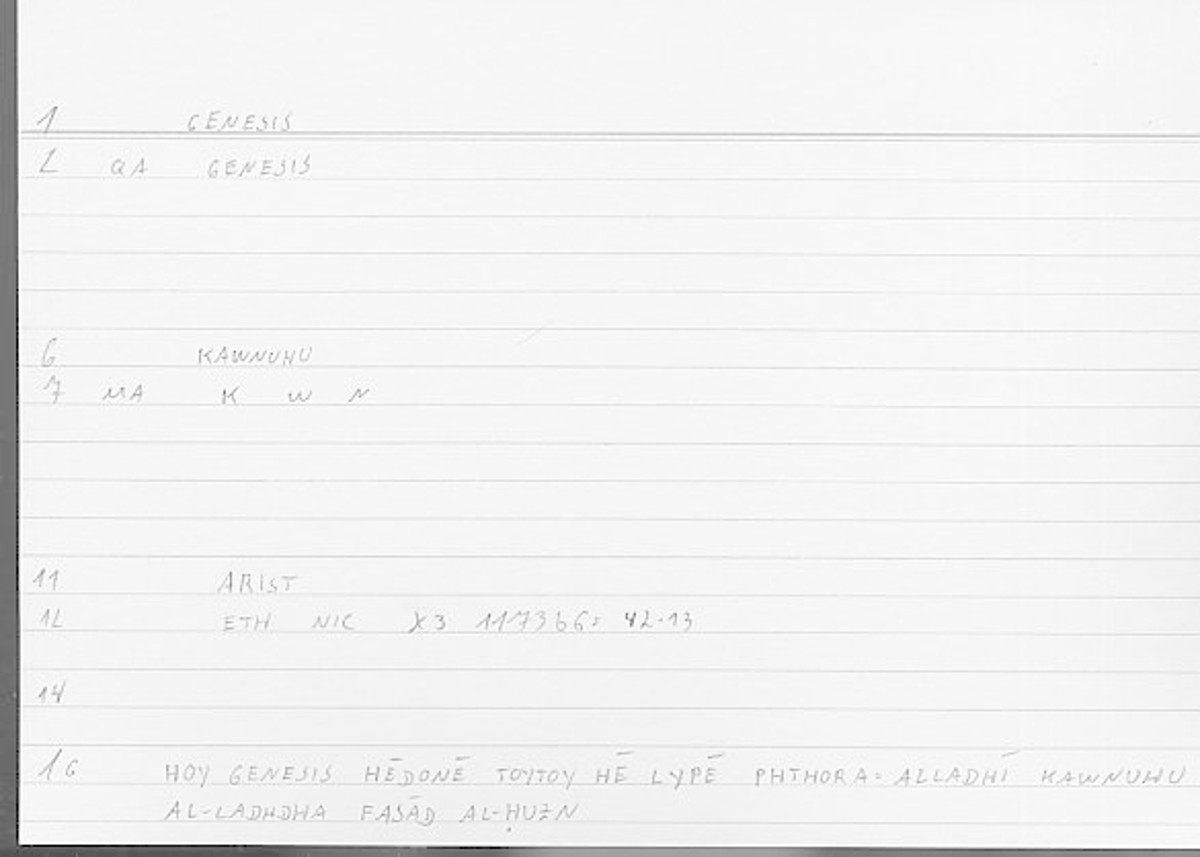 1 GENESIS
2 QA GENESIS
6 KAWNUHU
7 MA K W N
11 ARIST
12 ETH NIC X3 1173b6= 42.13
14
16 HOY GENESIS HĒDONĒ TOYTOY HĒ LYPĒ PHTHORA= ALLADHĪ KAWNUHU
AL-LADHDHA FASĀD AL-ḤUZN